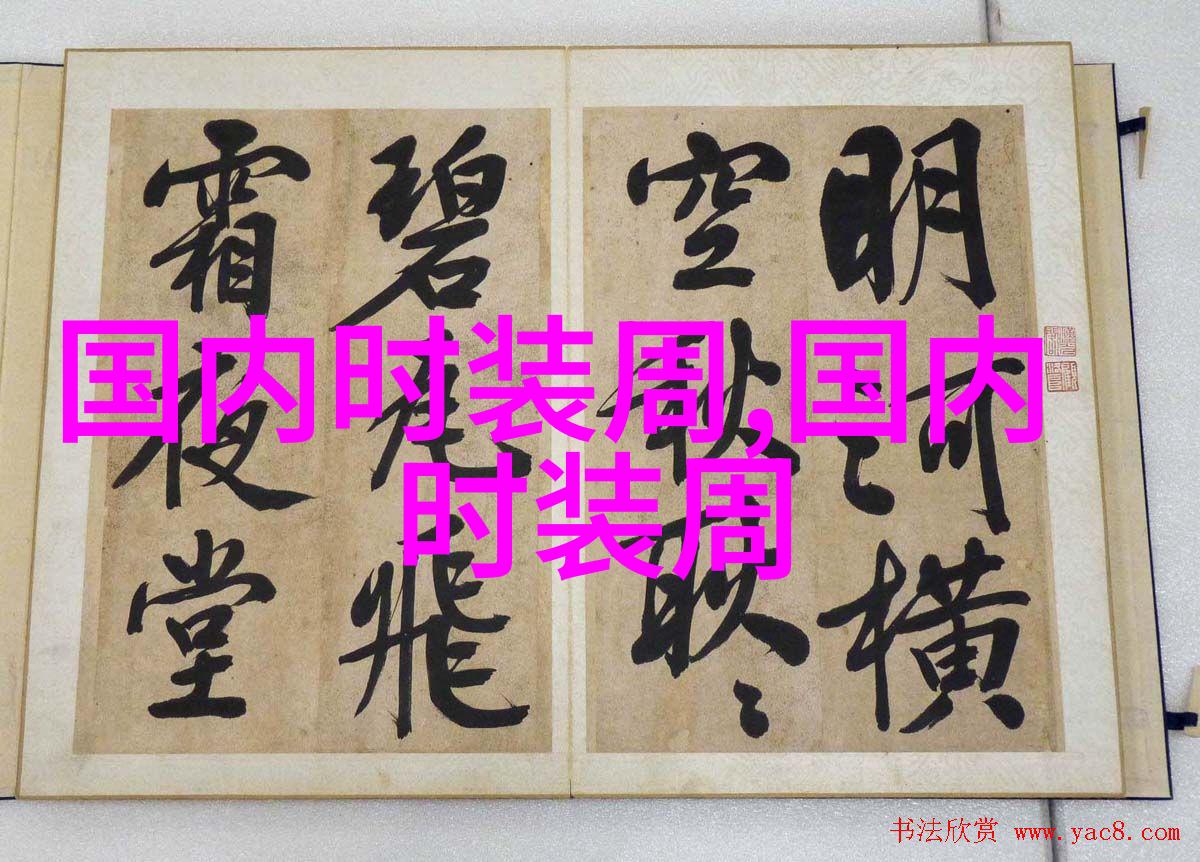 明河橫
空秋耿〻
碧瓦飛
霜夜堂
国内时装周,国内
时装周
书法欣赏 www.yac8.com